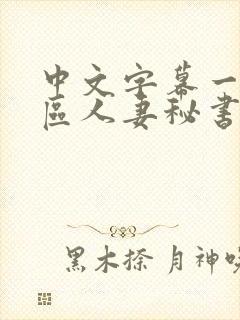 中文字幕一
區人妻秘書
黑木捺 月神